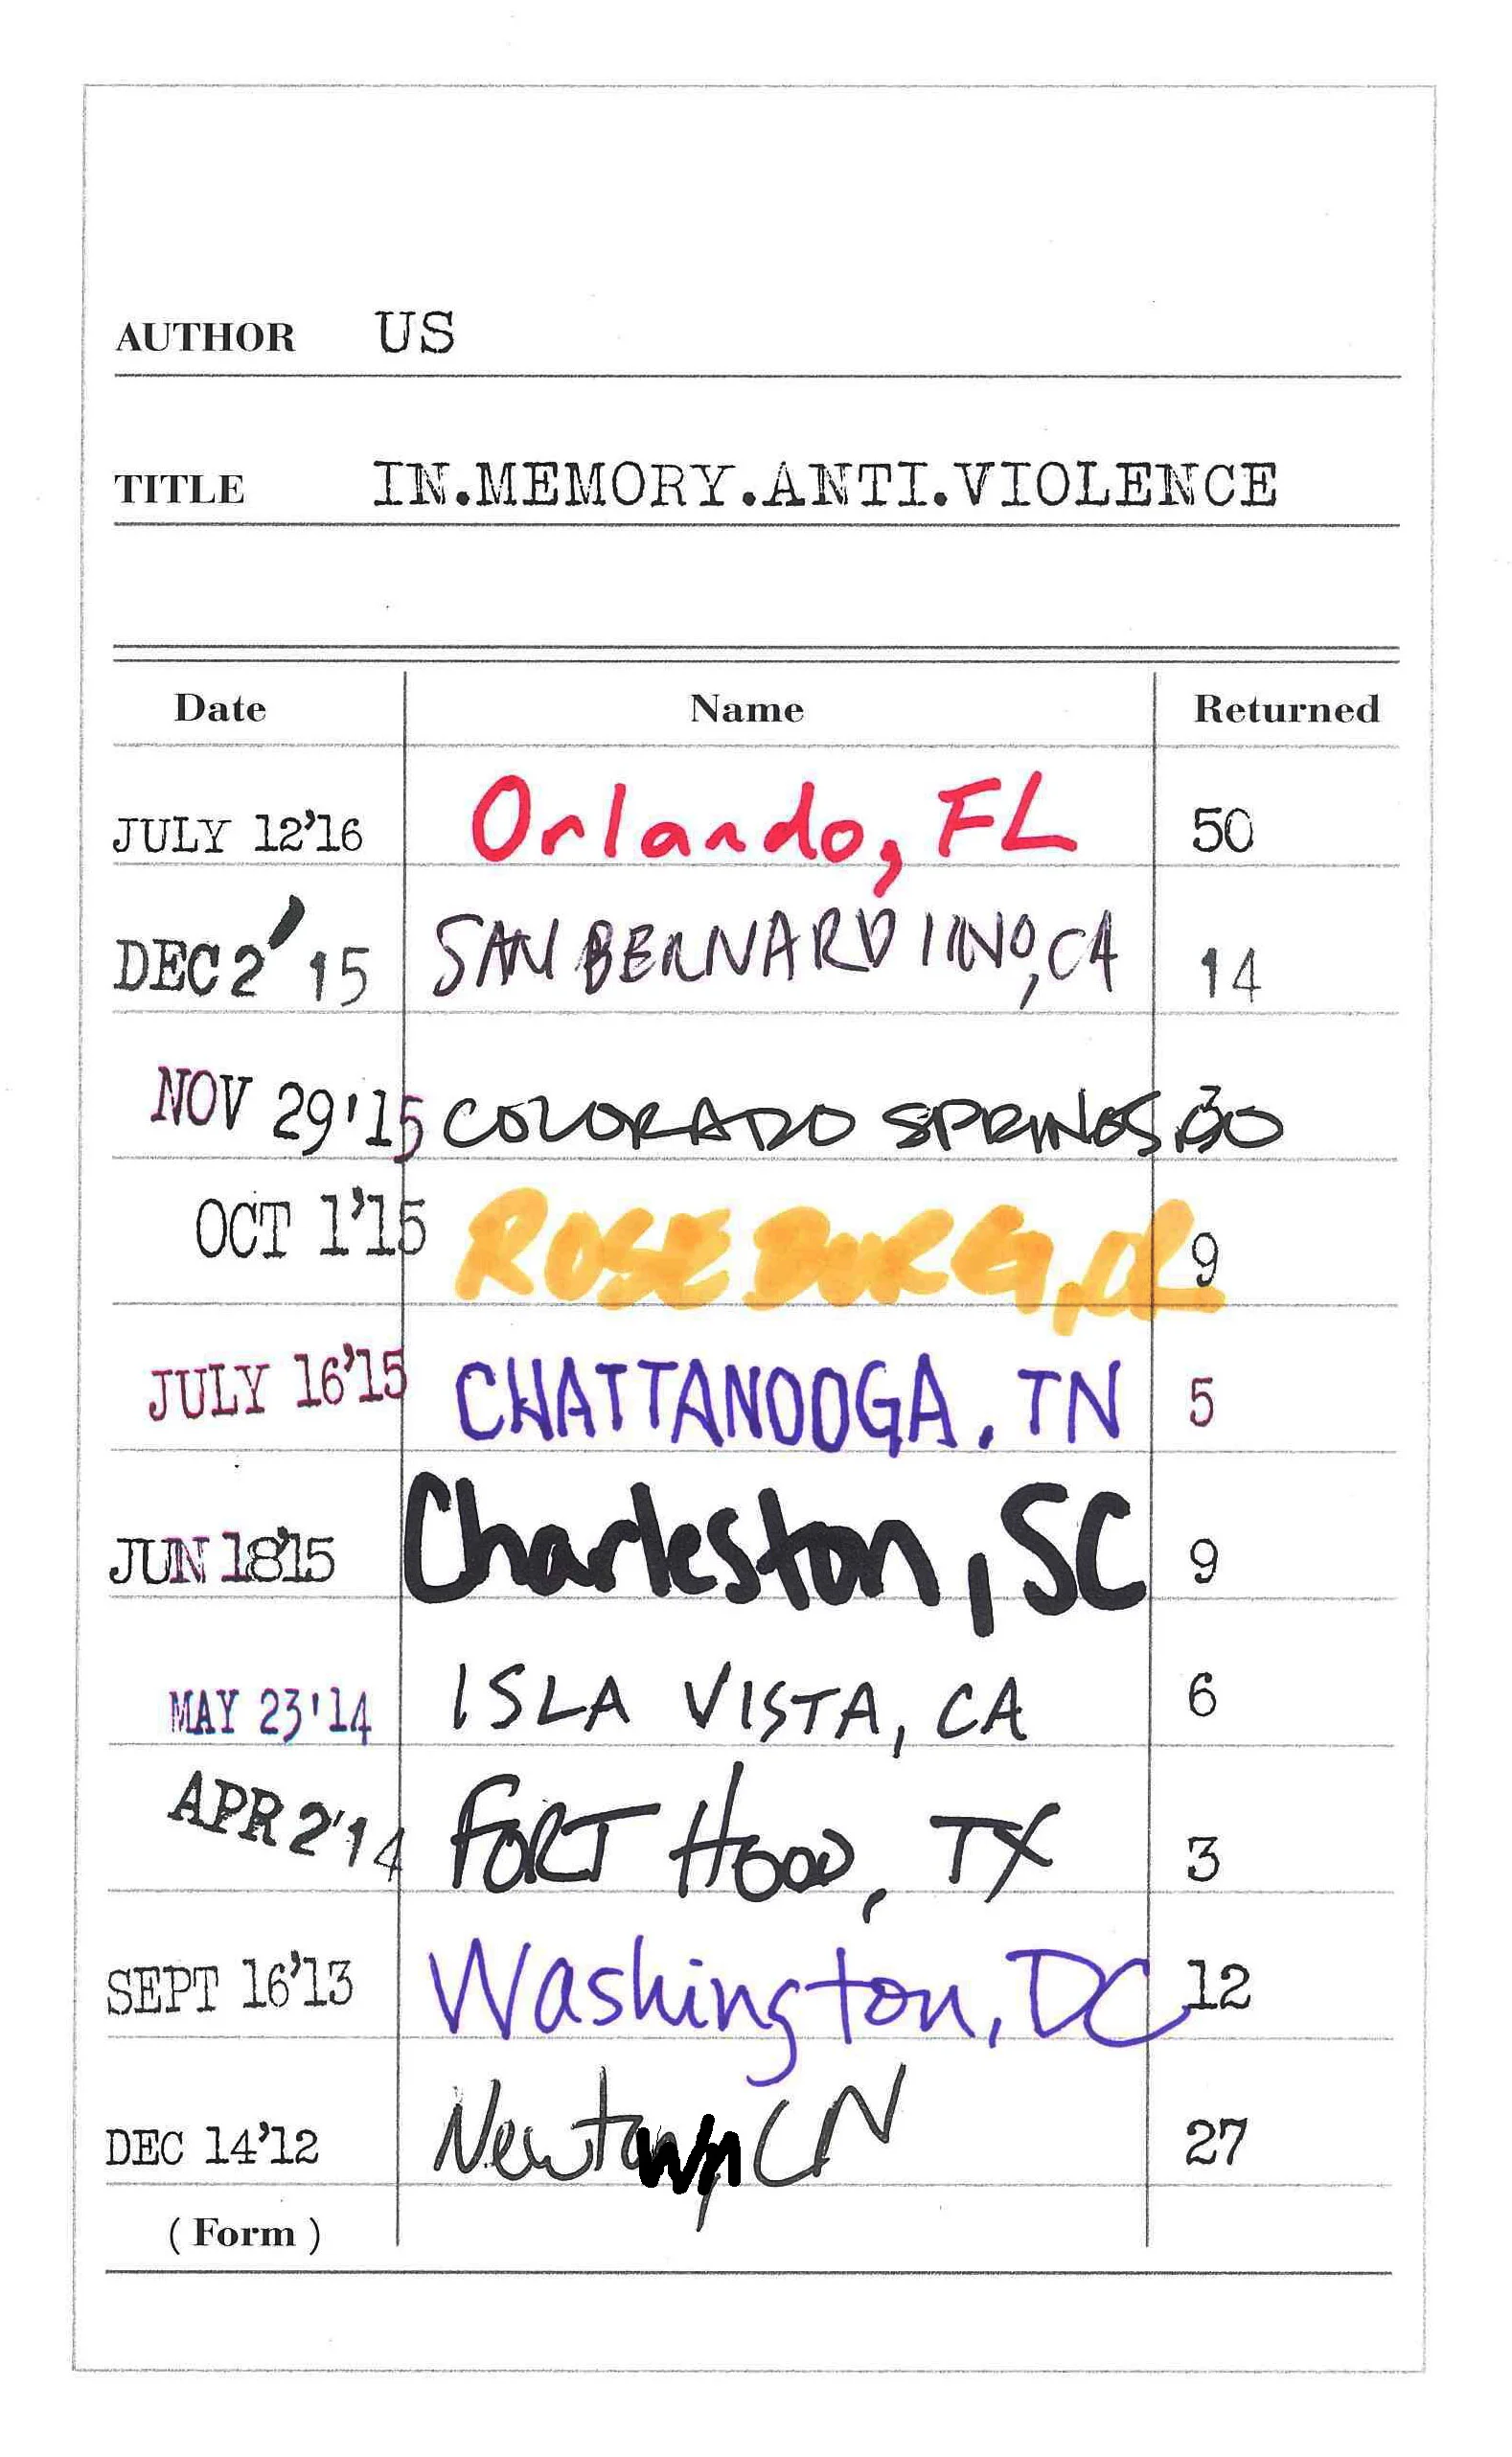 AUTHOR US
TITLE IN.MEMORY.ANTI.VIOLENCE
Date Name Returned
JULY 12'16 Orlando, FL 50
DEC 2'15 SAN BERNARDINO, CA 14
NOV 29'15 COLORADO SPRINGS 30
OCT 1'15 ROSEBURG, OR 9
JULY 16'15 CHATTANOOGA, TN 5
JUN 18'15 Charleston, SC 9
MAY 23'14 ISLA VISTA, CA 6
APR 2'14 FORT HOOD, TX 3
SEPT 16'13 Washington, DC 12
DEC 14'12 Newtown, CN 27
( Form )